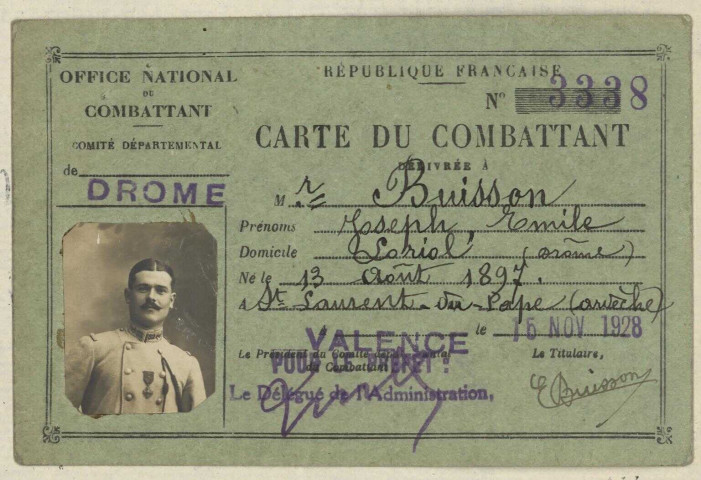 OFFICE NATIONAL
DU
COMBATTANT
COMITÉ DÉPARTEMENTAL
de
DROME
RÉPUBLIQUE FRANÇAISE
Nº 3338
CARTE DU COMBATTANT
DÉLIVRÉE À
M r Buisson
Prénoms Joseph, Emile
Domicile Loriol (Drôme)
Né le 13 Août 1897.
à St Laurent-du-Pape (Ardèche)
VALENCE le 15 NOV 1928
Le Président du Comité départemental
du Combattant
POUR LE PRÉFET :
Le Délégué de l'Administration,
Le Titulaire,
E Buisson